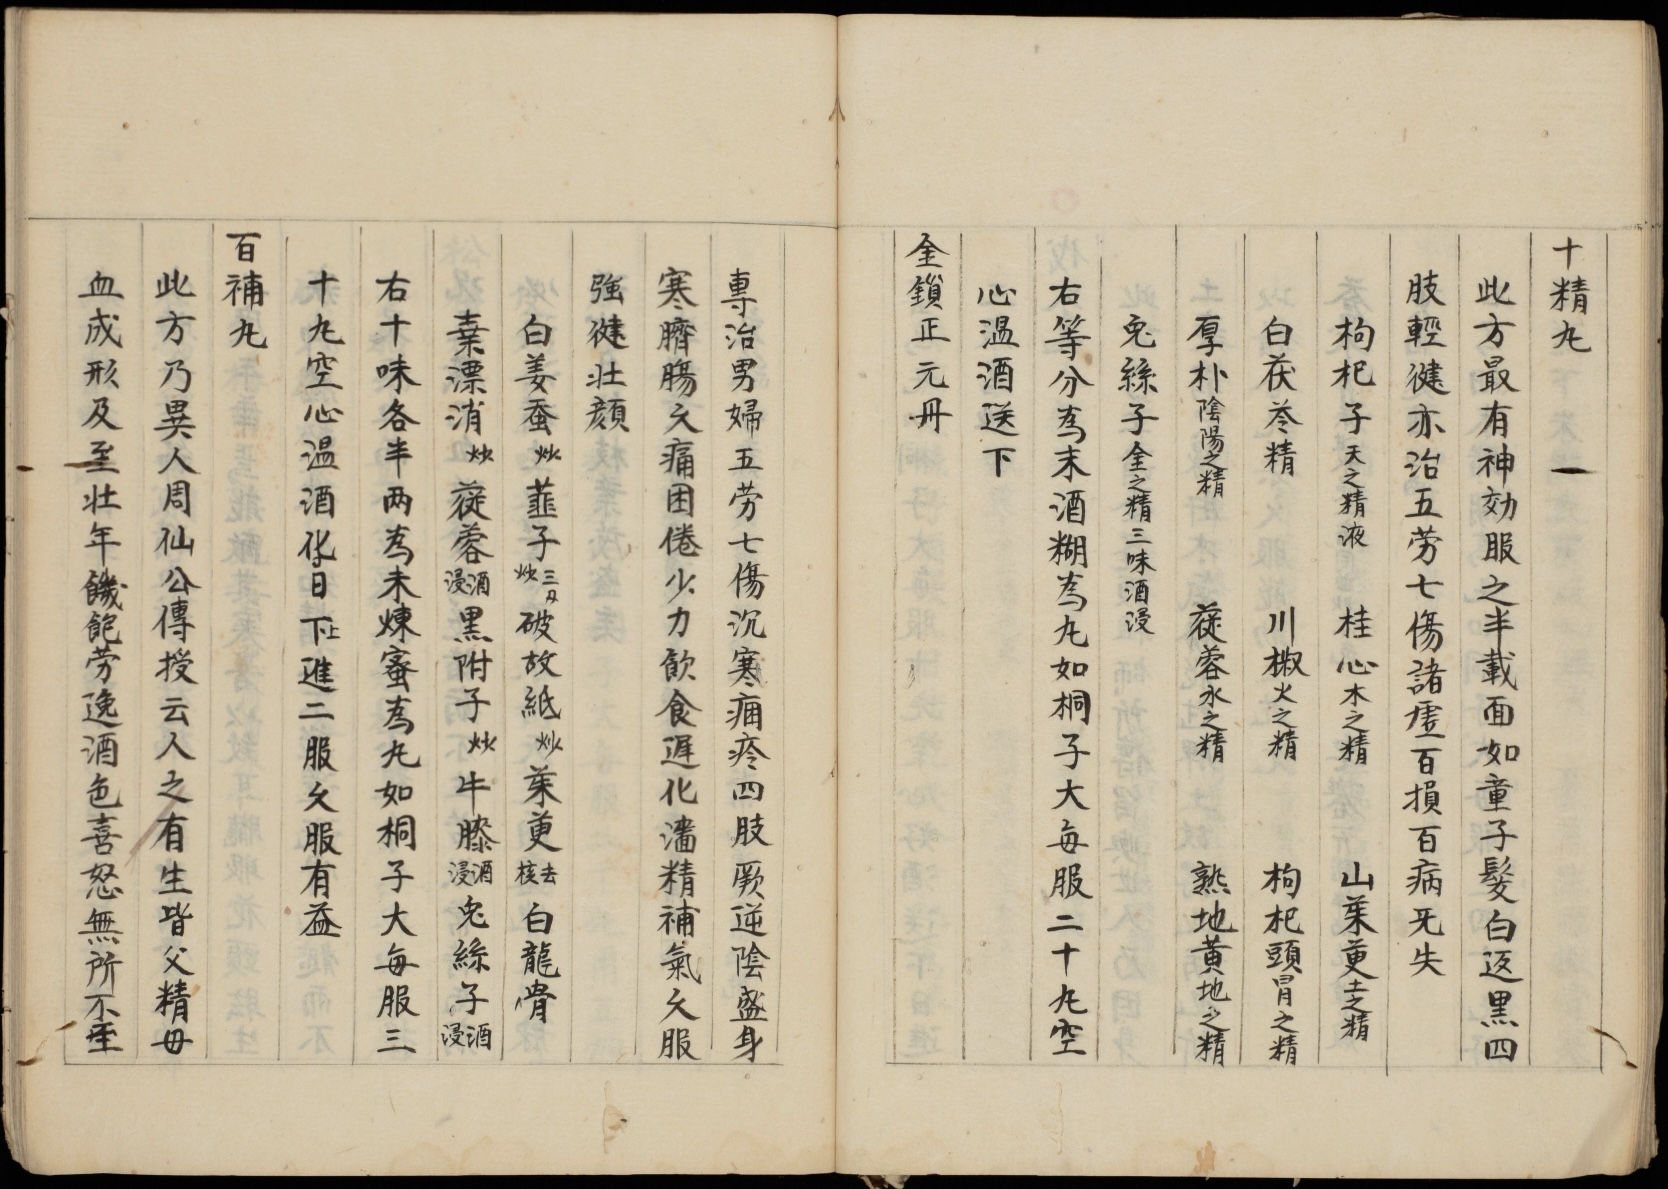 十精丸
此方最有神効服之半載面如童子髮白返黑四
肢輕健亦治五劳七傷諸虛百損百病旡失
枸杞子天之精液 桂心木之精 山茱萸土之精
白茯苓精 川椒火之精 枸杞頭冐之精
厚朴陰陽之精 蓯蓉水之精 熟地黃地之精
兎絲子金之精三味酒浸
右等分為末酒糊為丸如桐子大每服二十丸空
心温酒送下
金鎖正元丹
專治男婦五劳七傷沉寒痼疼四肢厥逆陰盛身
寒臍腸久痛困倦少力飲食遲化濇精補氣久服
強健壮顔
白姜蚕炒 韮子三刄炒 破故紙炒 茱萸去核 白龍骨
桒漂消炒 蓯蓉酒浸 黑附子炒 牛膝酒浸 兎絲子酒浸
右十味各半両為末煉蜜為丸如桐子大每服三
十丸空心温酒化日下上進二服久服有益
百補丸
此方乃異人周仙公傳授云人之有生皆父精母
血成形及至壮年饑飽劳逸酒色喜怒無所不至